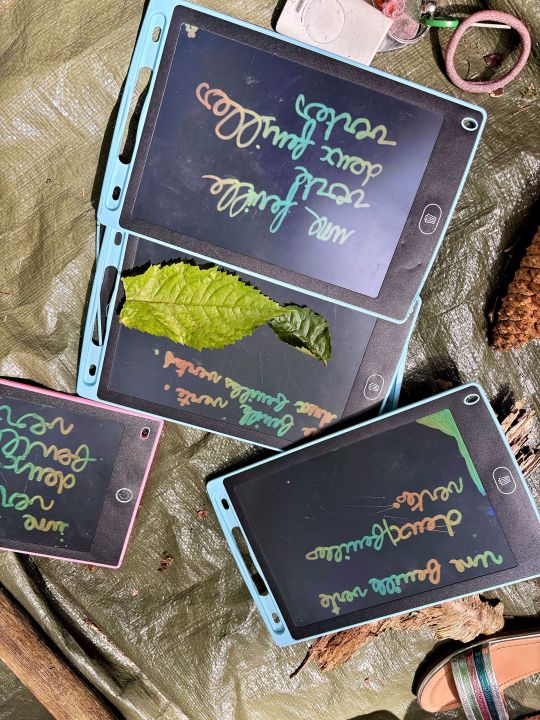 une feuille feuille
verte
deux feuilles feuilles
vertes
feuille verte.
deux feuilles vertes.
une
ver
deux
ver
une feuille verte
deux feuilles
vertes